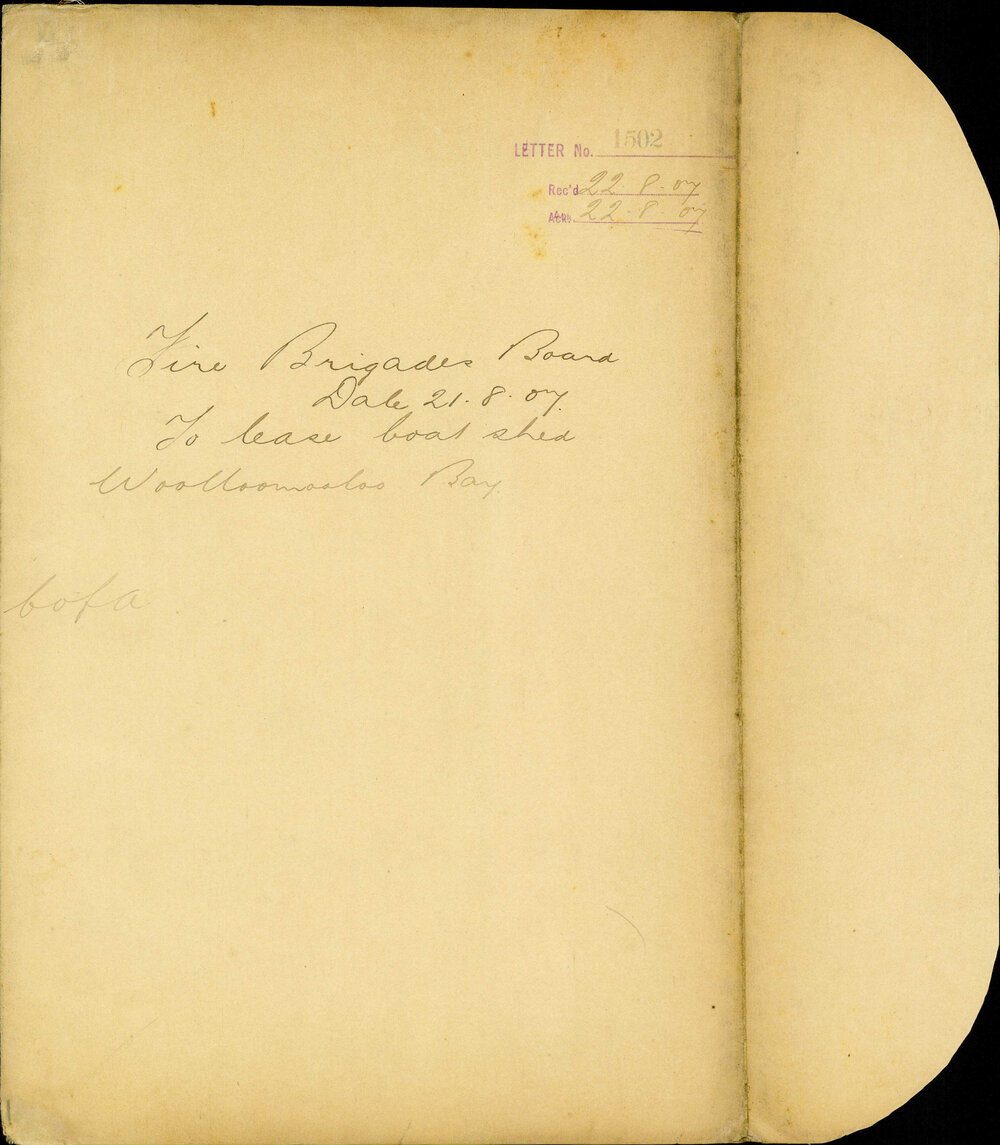 LETTER No. 1502
Rec'd 22.8.07
Ack. 22.8.07
Fire Brigades Board
Date 21.8.07.
To lease boat shed
Woolloomooloo Bay